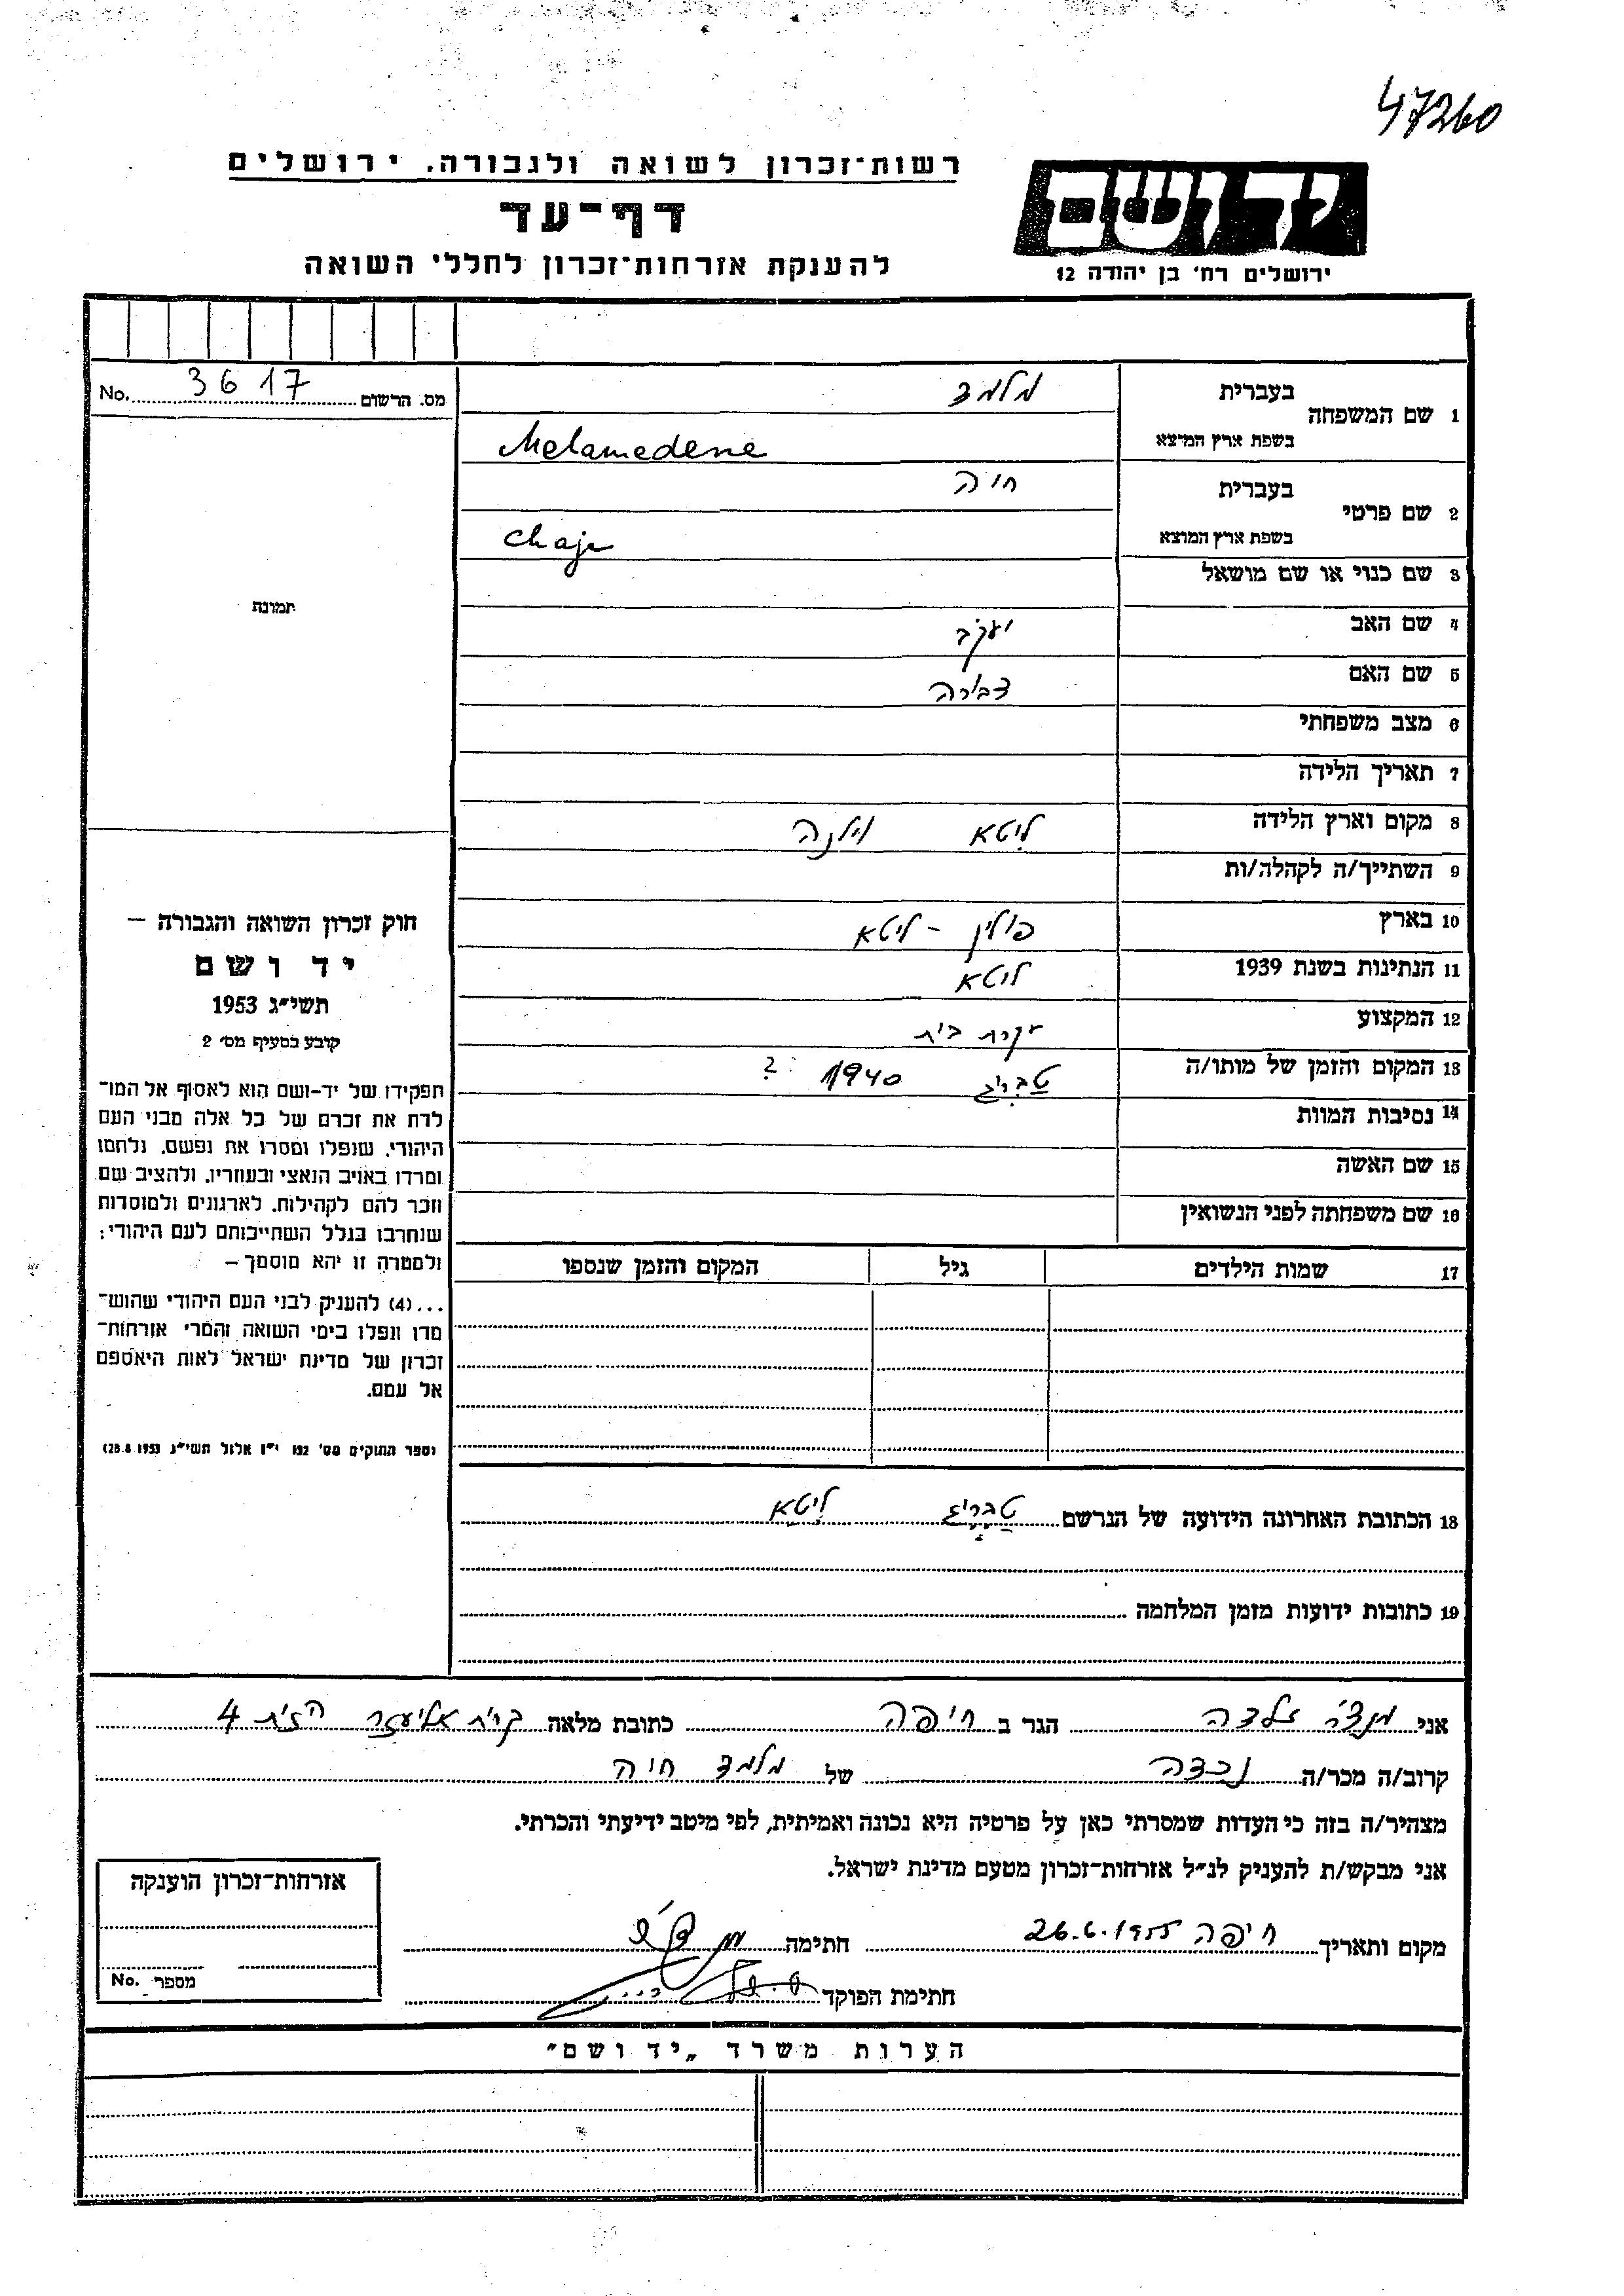 47260
רשות־זכרון לשואה ולגבורה, ירושלים
יד ושם
דף־עד
להענקת אזרחות־זכרון לחללי השואה
ירושלים רח' בן יהודה 12
מס. הרשום 3617 No.
1 שם המשפחה
בעברית מלמד
בשפת ארץ המוצא Melamedene
2 שם פרטי
בעברית חיה
בשפת ארץ המוצא Chaje
3 שם כנוי או שם מושאל
תמונה
4 שם האב יעקב
5 שם האם דבורה
6 מצב משפחתי
7 תאריך הלידה
8 מקום וארץ הלידה ליטא וילנה
9 השתייך/ה לקהלה/ות
10 בארץ פולין - ליטא
11 הנתינות בשנת 1939 ליטא
12 המקצוע עקרת בית
13 המקום והזמן של מותו/ה טבריג 1940 ?
14 נסיבות המוות
15 שם האשה
16 שם משפחתה לפני הנשואין
17 שמות הילדים גיל המקום והזמן שנספו
חוק זכרון השואה והגבורה –
יד ושם
תשי״ג 1953
קובע בסעיף מס' 2
תפקידו של יד-ושם הוא לאסוף אל המו־
לדת את זכרם של כל אלה מבני העם
היהודי, שנפלו ומסרו את נפשם, נלחמו
ומרדו באויב הנאצי ובעוזריו, ולהציב שם
וזכר להם לקהילות, לארגונים ולמוסדות
שנחרבו בגלל השתייכותם לעם היהודי;
ולמטרה זו יהא מוסמך –
...(4) להעניק לבני העם היהודי שהוש־
מדו ונפלו בימי השואה והמרי אזרחות־
זכרון של מדינת ישראל לאות היאספם
אל עמם.
(ספר החוקים מס' 132 י״ז אלול תשי״ג 28.8.1953)
18 הכתובת האחרונה הידועה של הנרשם טבריג ליטא
19 כתובות ידועות מזמן המלחמה
אני זלדה הגר ב חיפה כתובת מלאה קרית אליעזר הזית 4
קרוב/ה מכר/ה נכדה של מלמד חיה
מצהיר/ה בזה כי העדות שמסרתי כאן על פרטיה היא נכונה ואמיתית, לפי מיטב ידיעתי והכרתי.
אני מבקש/ת להעניק לנ״ל אזרחות־זכרון מטעם מדינת ישראל.
מקום ותאריך חיפה 26.6.1955 חתימה
חתימת הפוקד
אזרחות־זכרון הוענקה
מספר No.
הערות משרד „יד ושם״